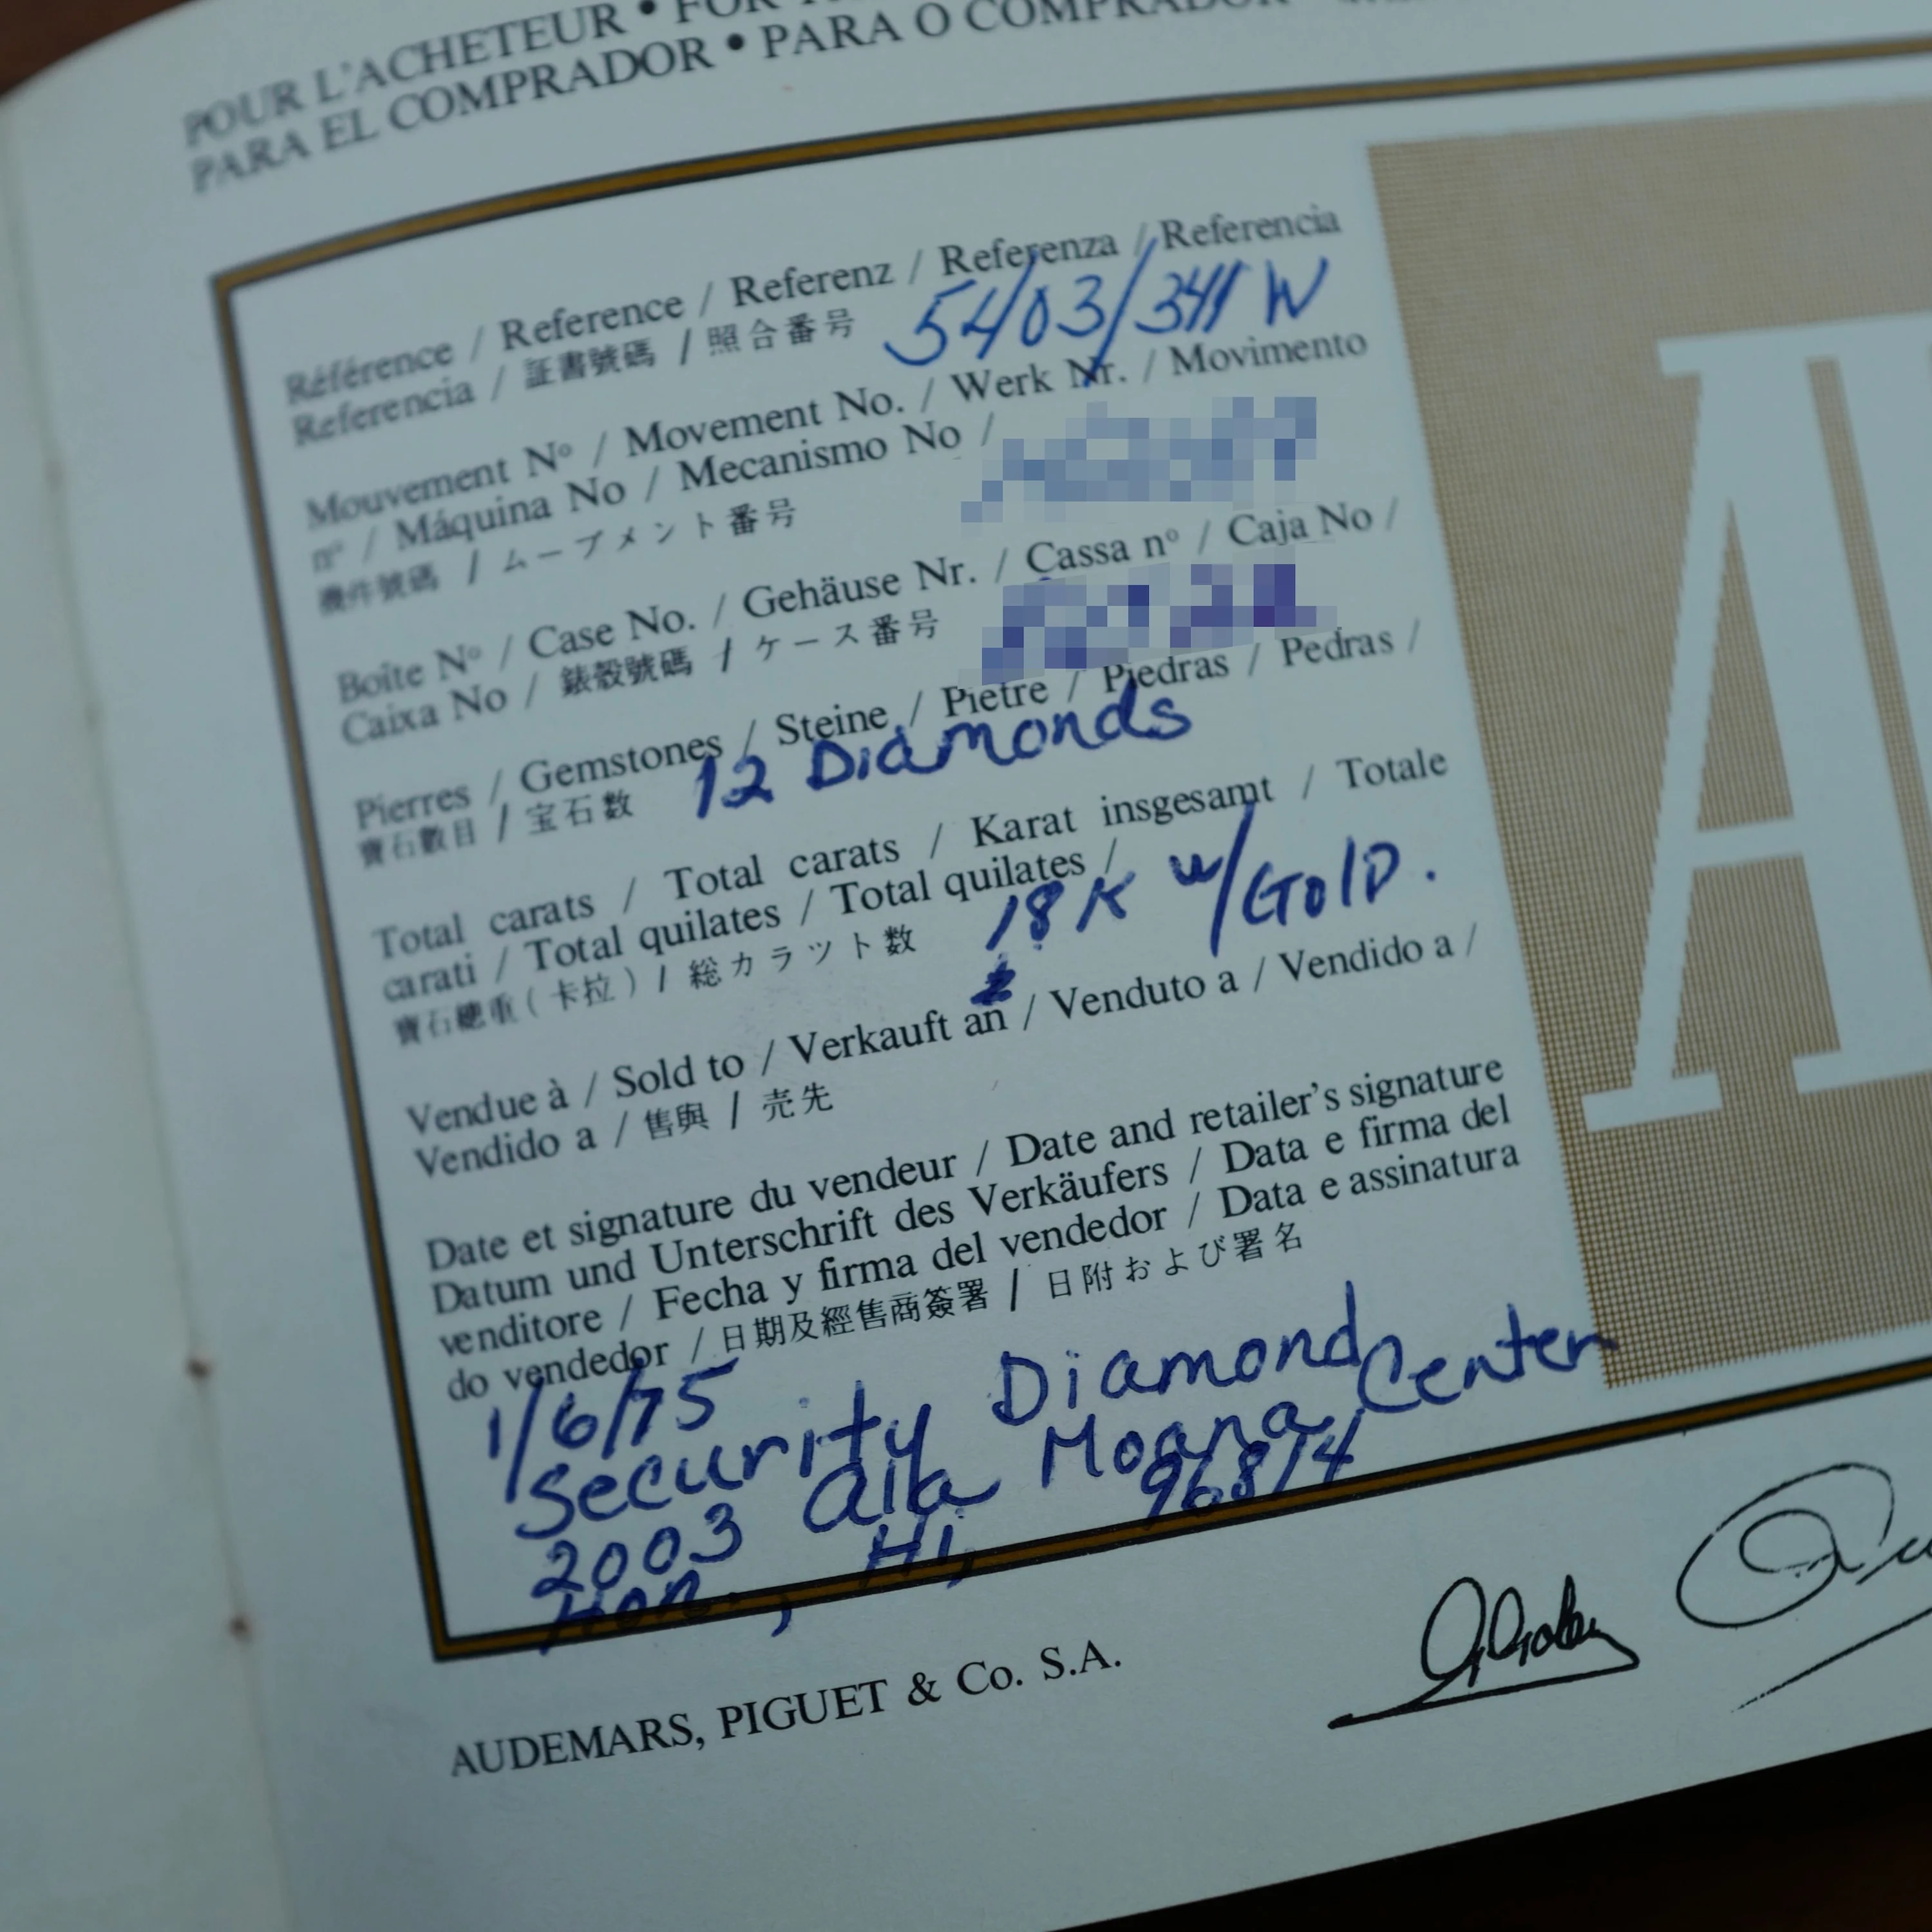 POUR L'ACHETEUR •
PARA EL COMPRADOR • PARA O COMPRADOR
Référence / Reference / Referenz / Referenza / Referencia
Referencia / 証書號碼 / 照合番号 5403/344 W
Mouvement Nº / Movement No. / Werk Nr. / Movimento
nº / Máquina No / Mecanismo No /
機件號碼 / ムーブメント番号
Boîte Nº / Case No. / Gehäuse Nr. / Cassa nº / Caja No /
Caixa No / 錶殼號碼 / ケース番号
Pierres / Gemstones / Steine / Pietre / Piedras / Pedras /
寶石數目 / 宝石数 12 Diamonds
Total carats / Total carats / Karat insgesamt / Totale
carati / Total quilates / Total quilates /
寶石總重(卡拉) / 総カラット数 18K W/GOlD.
Vendue à / Sold to / Verkauft an / Venduto a / Vendido a /
Vendido a / 售與 / 売先
Date et signature du vendeur / Date and retailer's signature
Datum und Unterschrift des Verkäufers / Data e firma del
venditore / Fecha y firma del vendedor / Data e assinatura
do vendedor / 日期及經售商簽署 / 日附および署名
1/6/75
Security Diamond Center
2003 Ala Moana
Hon., Hi, 96814
AUDEMARS, PIGUET & Co. S.A.
A